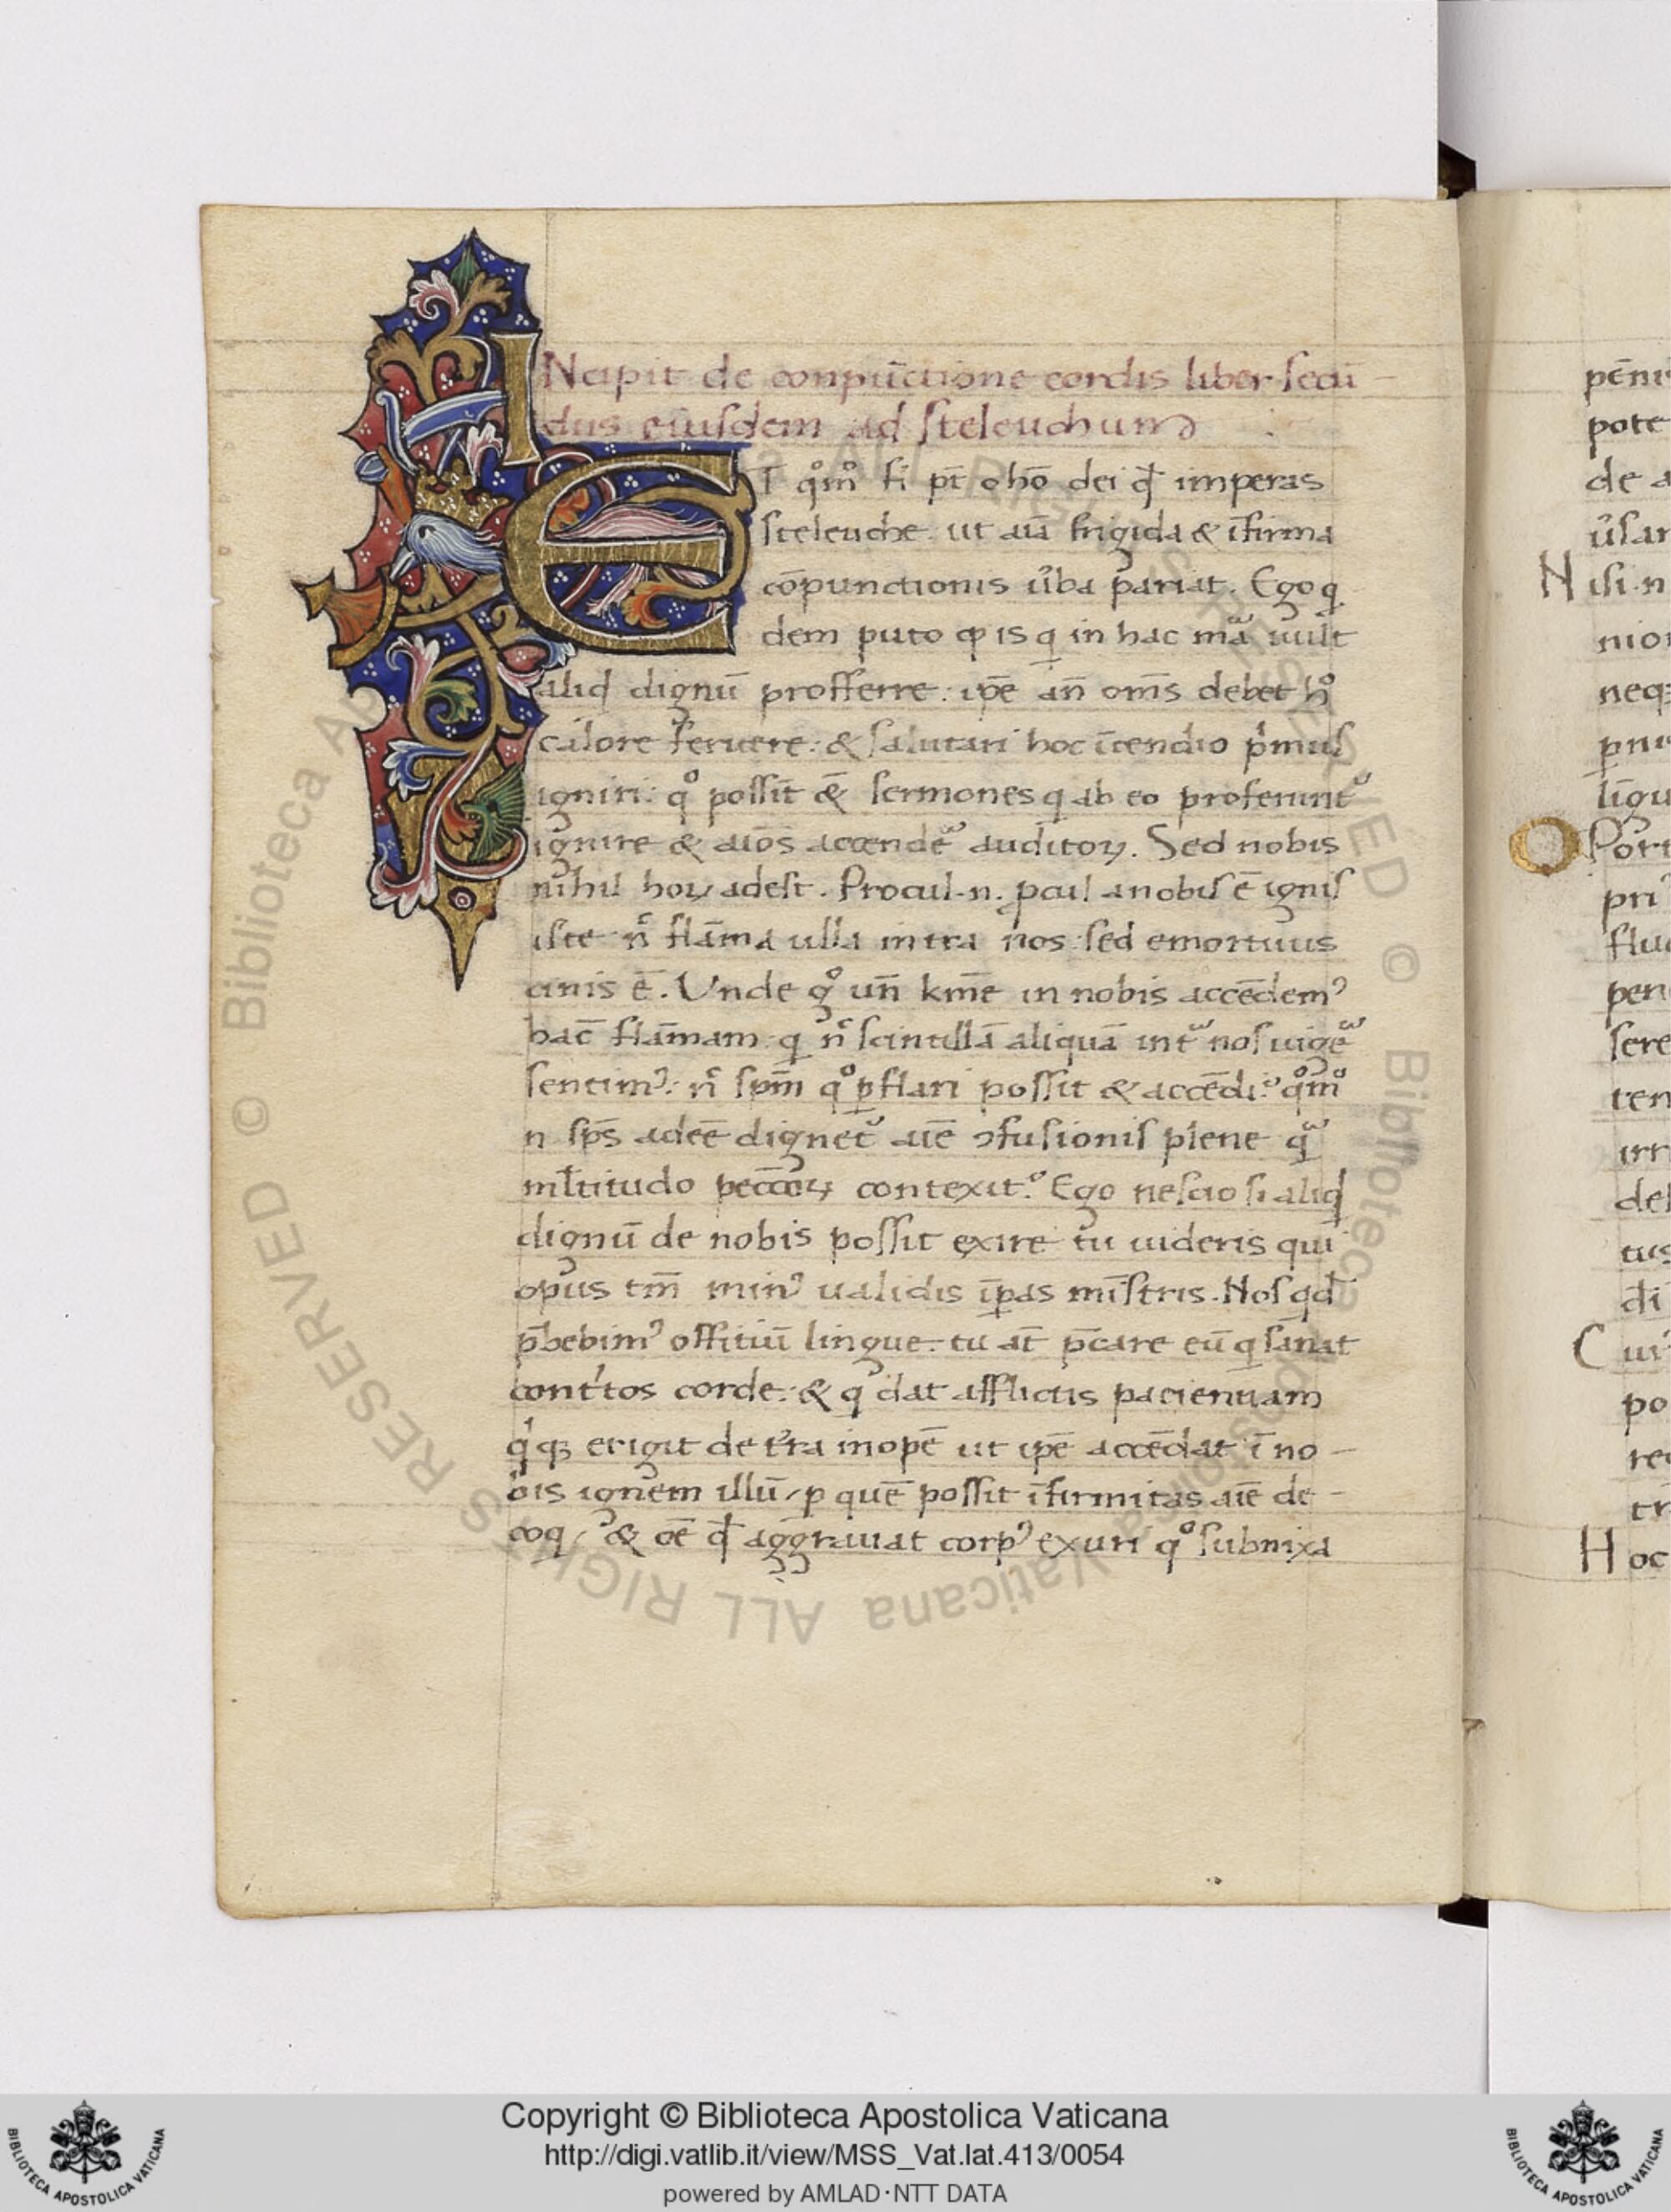 INcipit de conpūctione cordis liber secū-
dus eiusdem ad steleuchum
ET qͦmͦ fi pt̄ o hō dei qđ imperas
steleuche. ut aīa frigida & īfirma
cōpunctionis ůba pariat. Ego q
dem puto ꝙ is q in hac mͣā uult
aliqd dignū profferre: ip̄e an̄ om̄s debet hͦ
calore feruere: & salutari hoc īcendio pͥmus
igniri: qͦ possīt & sermones q ab eo proferunt᷑
ignire & aīos accendē auditoꝝ. Sed nobis
nihil hoꝝ adest. Procul .n. ꝓcul a nobis ē ignis
iste nͨ flāma ulla intra nos: sed emortuus
cinis ē. Unde gͦ un̄ km̄e in nobis accēdemꝰ
hac̄ flām̄am: q nͨ scintillā aliquā intͣ nos uigē
sentimꝰ: nͨ spm̄ qͦ ꝑflari possit & accēdi: qͦmͦ
n sp̄s adēe dignet᷑ aīe ꝯfusionis plene qͣ
ml̄titudo peccc̄oꝝ contexit: Ego nescio si aliqd
dignū de nobis possit exire tu uideris qui
opus tm̄ minꝰ ualidis īꝑas mīstris. Nos qd
p̄bebimꝰ offitiū lingue: tu at̄ p̄care eū q sanat
contͥtos corde: & qͥ dat afflictis pacientiam
qͥqꝫ erigit de tr̓a inopē ut ip̄e accēdat ī no-
bis ignem illū, ꝑ quē possit īfirmitas aīe de-
coq, & oē qđ aggrauat corpꝰ exuri qͦ subnixa
pēni
pote
de a
ůsar
N isi n
nior
neqꝫ
līgu
O Port
pri
flu
pen
sere
ten
irr
del
tus
C ui
po
re
H oc
© Biblioteca Apostolica Vaticana ALL RIGHTS RESERVED
Copyright © Biblioteca Apostolica Vaticana
http://digi.vatlib.it/view/MSS_Vat.lat.413/0054
powered by AMLAD·NTT DATA
BIBLIOTECA APOSTOLICA VATICANA
BIBLIOTECA APOSTOLICA VATICANA